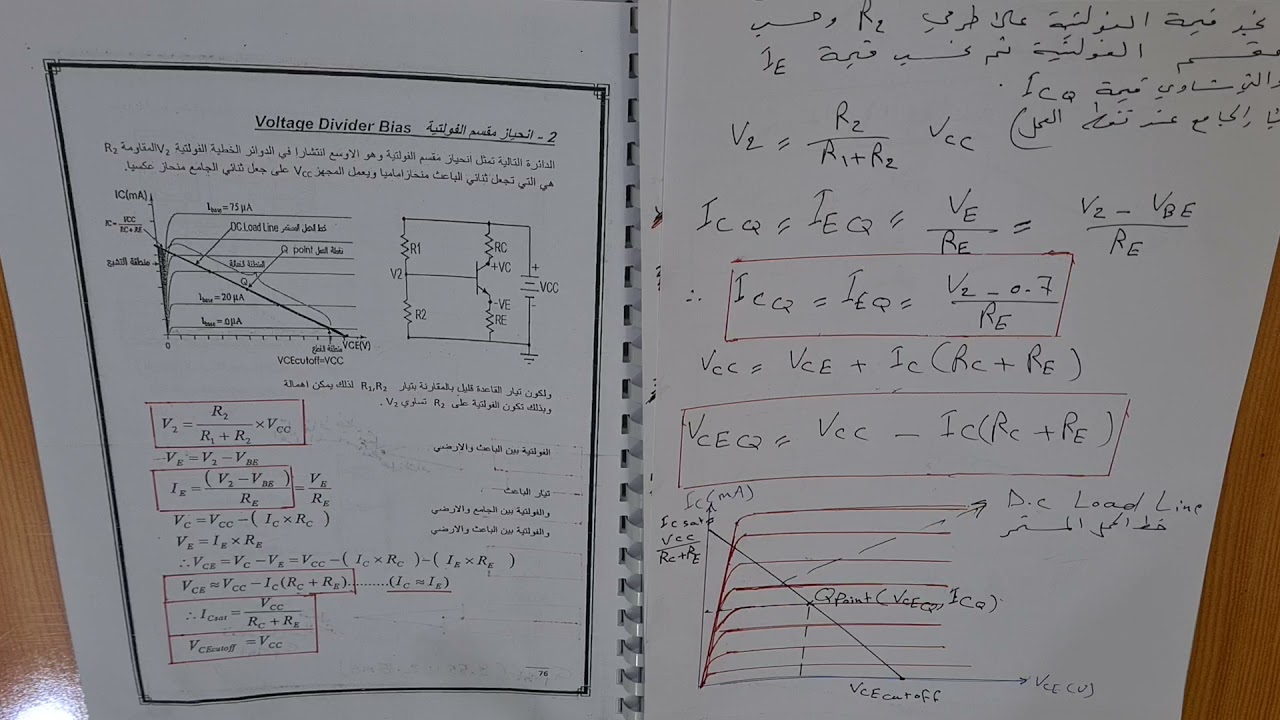 2 - انحياز مقسم الفولتية Voltage Divider Bias
الدائرة التالية تمثل انحياز مقسم الفولتية وهو الاوسع انتشارا في الدوائر الخطية الفولتية V2المقاومة R2
هي التي تجعل ثنائي الباعث منحازاماميا ويعمل المجهز VCC على جعل ثنائي الجامع منحاز عكسيا.
IC(mA)
Ibase = 75 μA
IC = VCC / RC+RE
DC Load Line خط الحمل المستمر
Q point نقطة العمل
منطقة التشبع
المنطقة الفعالة
Q
Ibase = 20 μA
Ibase = .0μA
0
VCE(V)
منطقة القطع
VCEcutoff=VCC
R1
RC
+VC
V2
+
VCC
-
-VE
R2
RE
ولكون تيار القاعدة قليل بالمقارنة بتيار R1,R2 لذلك يمكن اهمالة
وبذلك تكون الفولتية على R2 تساوي V2 .
V2 = R2 / R1 + R2 × VCC
VE = V2 − VBE الفولتية بين الباعث والارضي
IE = (V2 − VBE) / RE = VE / RE تيار الباعث
VC = VCC − ( IC × RC ) والفولتية بين الجامع والارضي
VE = IE × RE والفولتية بين الباعث والارضي
∴ VCE = VC − VE = VCC − ( IC × RC ) − ( IE × RE )
VCE ≈ VCC − IC(RC + RE)..........(IC ≈ IE)
∴ ICsat = VCC / RC + RE
VCEcutoff = VCC
76
قيمة الفولتية على طرفي R2 وحسب
مقسم الفولتية ثم نحسب قيمة IE
والتي تساوي قيمة ICQ .
الجامع عند نقطة العمل)
V2 = R2 / R1 + R2 VCC
ICQ = IEQ = VE / RE = V2 − VBE / RE
∴ ICQ = IEQ = V2 − 0.7 / RE
VCC = VCE + IC (RC + RE)
VCEQ = VCC − IC(RC + RE)
IC(mA)
ICsat
VCC / RC+RE
D.C Load Line
خط الحمل المستمر
Q Point (VCEQ, ICQ)
VCEcutoff
VCE(V)